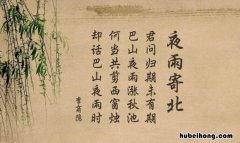 夜雨寄北
君问归期未有期
巴山夜雨涨秋池
何当共剪西窗烛
却话巴山夜雨时
李商隐
www.hubeihong.com